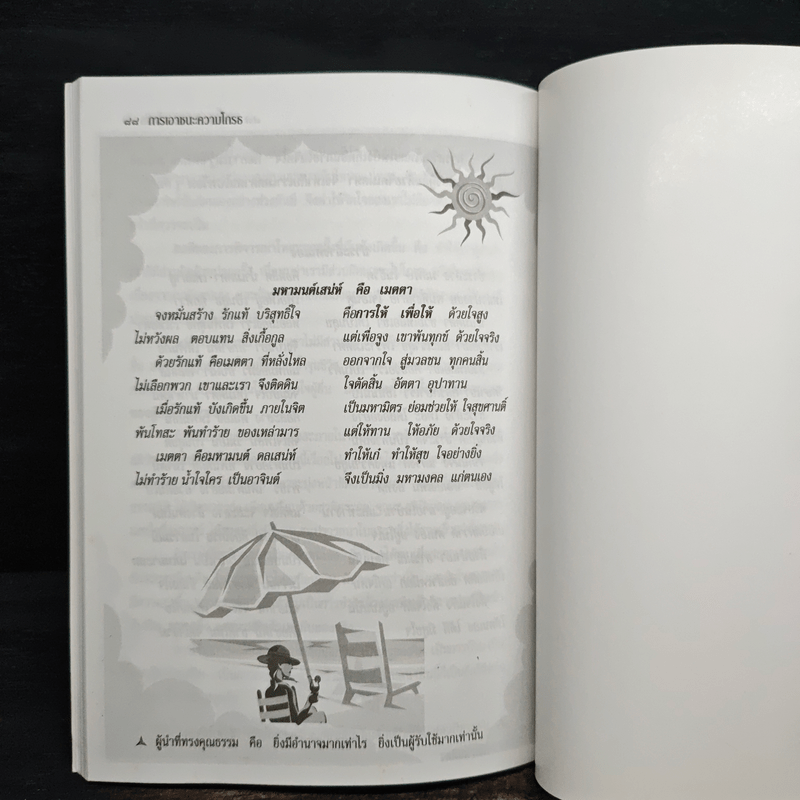 ๘๘ การเอาชนะความโกรธ
มหามนต์เสน่ห์ คือ เมตตา
จงหมั่นสร้าง รักแท้ บริสุทธิ์ใจ คือการให้ เพื่อให้ ด้วยใจสูง
ไม่หวังผล ตอบแทน สิ่งเกื้อกูล แต่เพื่อจูง เขาพ้นทุกข์ ด้วยใจจริง
ด้วยรักแท้ คือเมตตา ที่หลั่งไหล ออกจากใจ สู่มวลชน ทุกคนสิ้น
ไม่เลือกพวก เขาและเรา จึงติดดิน ใจตัดสิ้น อัตตา อุปาทาน
เมื่อรักแท้ บังเกิดขึ้น ภายในจิต เป็นมหามิตร ย่อมช่วยให้ ใจสุขศานติ์
พ้นโทสะ พ้นทำร้าย ของเหล่ามาร แต่ให้ทาน ให้อภัย ด้วยใจจริง
เมตตา คือมหามนต์ ดลเสน่ห์ ทำให้เก๋ ทำให้สุข ใจอย่างยิ่ง
ไม่ทำร้าย น้ำใจใคร เป็นอาจินต์ จึงเป็นมิ่ง มหามงคล แก่ตนเอง
ผู้นำที่ทรงคุณธรรม คือ ยิ่งมีอำนาจมากเท่าไร ยิ่งเป็นผู้รับใช้มากเท่านั้น